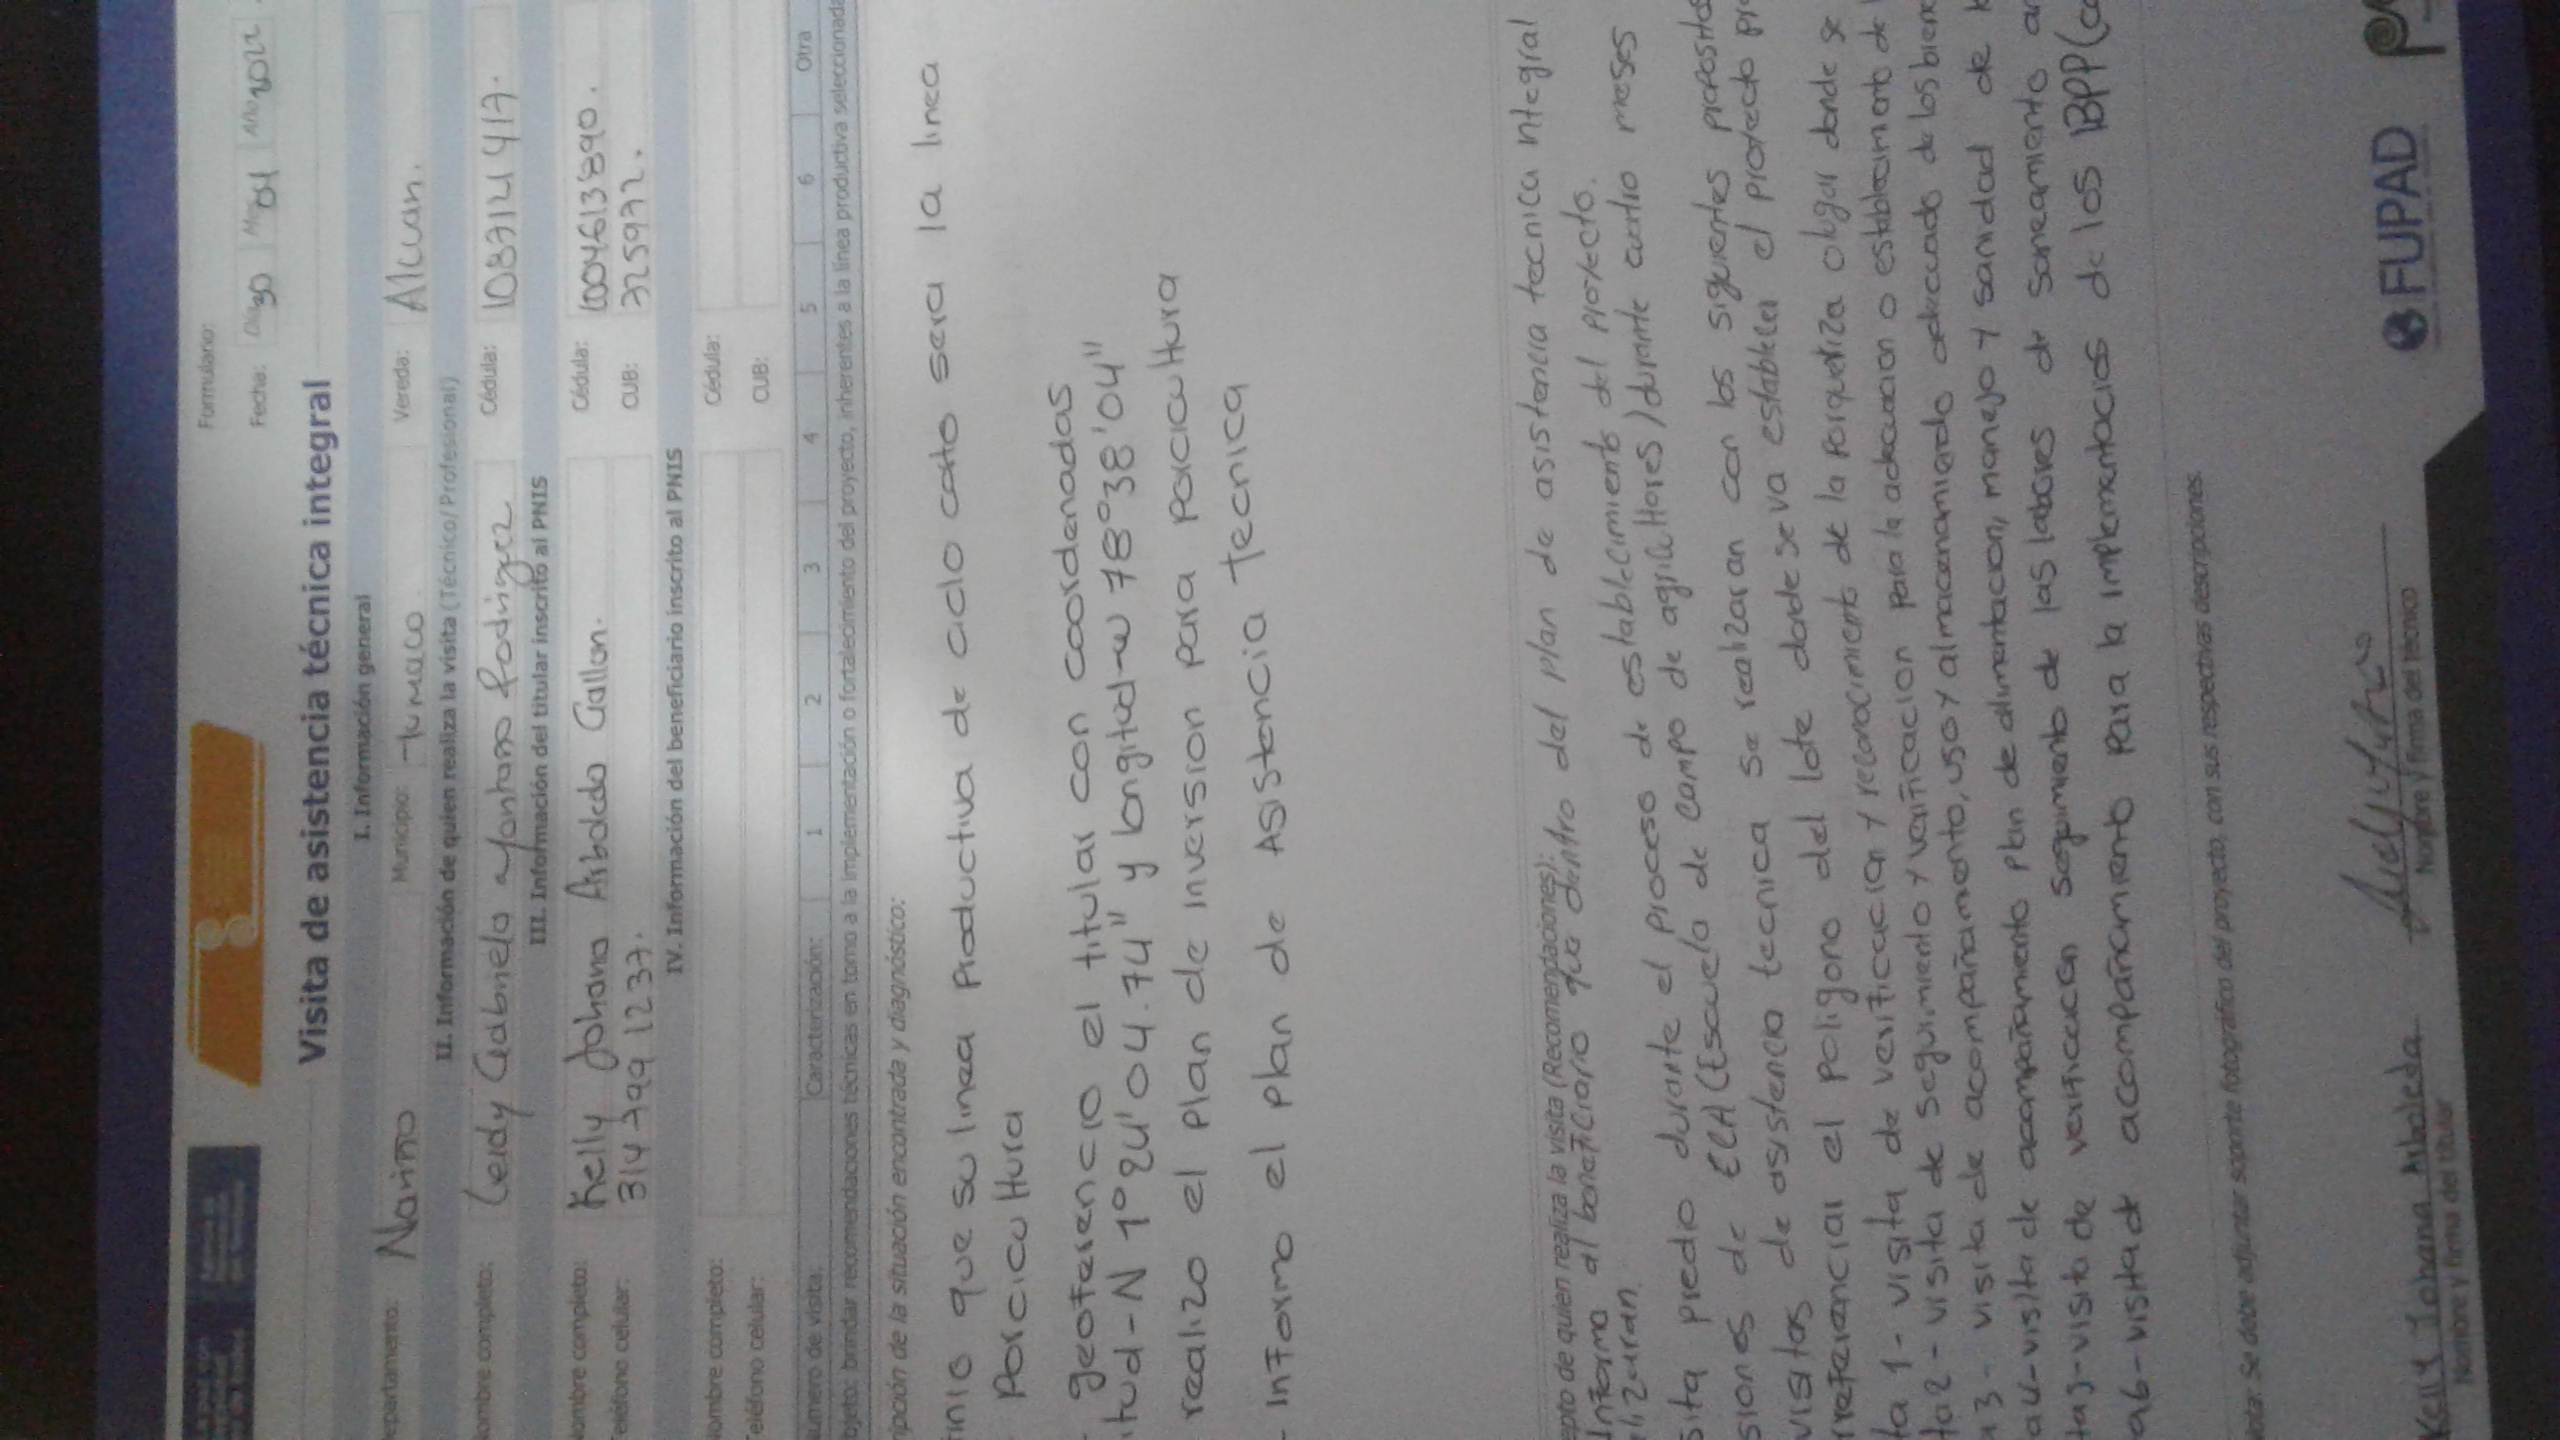 Formulario:
Fecha: Día 30 Mes 04 Año 2022
Visita de asistencia técnica integral
I. Información general
epartamento: Nariño Municipio: tumaco Vereda: Alcuan.
II. Información de quien realiza la visita (Técnico/Profesional)
ombre completo: Leidy Gabriela Montano Rodriguez Cédula: 1087121417.
III. Información del titular inscrito al PNIS
ombre completo: Kelly Johana Arboleda Gallon. Cédula: 1004613890.
eléfono celular: 314 799 1237. CUB: 7259972.
IV. Información del beneficiario inscrito al PNIS
ombre completo: Cédula:
eléfono celular: CUB:
úmero de visita: Caracterización: 1 2 3 4 5 6 Otra
objeto: brindar recomendaciones técnicas en torno a la implementación o fortalecimiento del proyecto, inherentes a la línea productiva seleccionada
ripción de la situación encontrada y diagnóstico:
inio que su linea Productiva de ciclo corto sera la linea
Porcicultura
georeferencio el titular con coordenadas
itud-N 1°24'04.74" y longitud-w 78°38'04"
realizo el plan de inversion para porcicultura
- Informo el plan de Asistencia tecnica
epto de quien realiza la visita (Recomendaciones):
Informa al beneficiario que dentro del plan de asistencia tecnica integral
lizaran.
sita predio durante el proceso de establecimiento del proyecto.
siones de ECA (Escuela de campo de agricultores) durante cuatro meses
visitas de asistencia tecnica se realizaran con los siguientes propositos
rreferenciar el poligono del lote donde se va establecer el proyecto pr
ta 1- visita de verificacion y reconocimiento de la porqueriza o lugar donde se
ta 2- visita de seguimiento y verificacion para la adecuacion o establecimiento de
a 3- visita de acompañamiento, uso y almacenamiento adecuado de los biene
a 4- visita de acompañamiento plan de alimentacion, manejo y sanidad de l
ta 5- visita de verificacion seguimiento de las labores de saneamiento
a 6- visita de acompañamiento para la implementacios de los BPP (
Nota: Se debe adjuntar soporte fotográfico del proyecto, con sus respectivas descripciones.
Kelly Johana Arboleda
Nombre y firma del titular
Nombre y firma del técnico
FUPAD